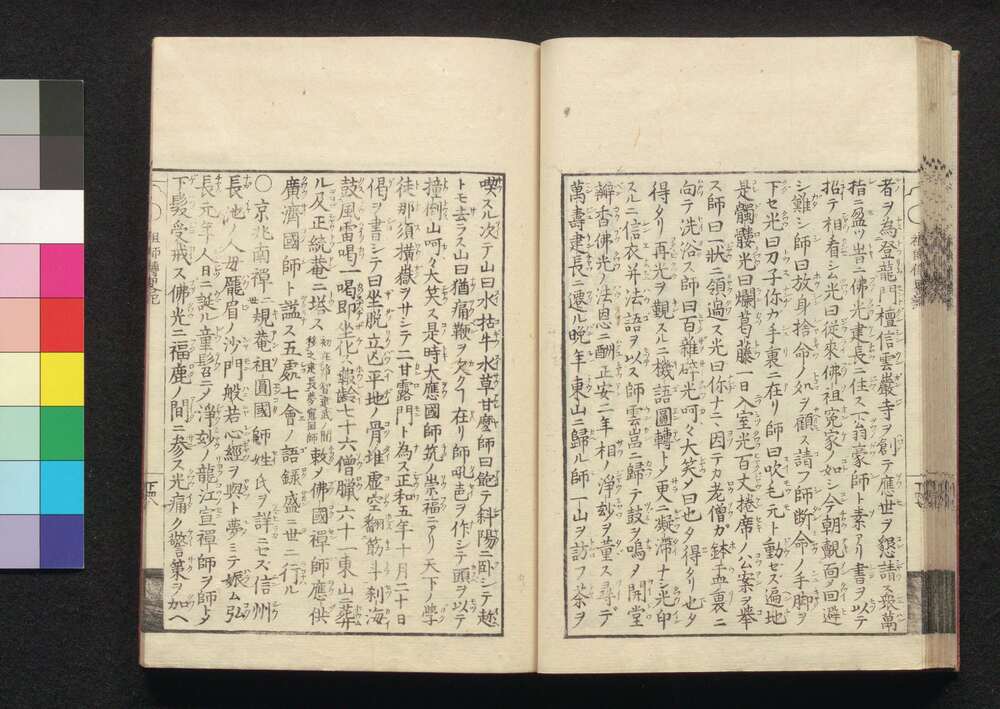 者ヲ為登龍門檀信雲巖寺ヲ創テ應世ヲ懇請ス衆萬
指ニ盈ツ旹ニ佛光建長ニ住ス翁豪師ト素アリ書ヲ以テ
招テ相看シム光曰從來佛祖冤家ノ如シ今朝覿面ヲ回避
シ難シ師曰放身捨命ノ処ヲ顧ス請フ師断命ノ手脚ヲ
下セ光曰刀子你カ手裏ニ在リ師曰吹毛元ト動セズ遍地
是髑髏光曰爛葛藤一日入室光百丈捲席ノ公案ヲ舉
ス師曰一狀ニ領過ス光曰你十二因テカ老僧ガ鉢盂裏ニ
向テ洗浴ス師曰百雜碎光呵々大笑〆曰也タ得タリ也タ
得タリ再光ヲ觀スルニ機語圓轉〆更ニ凝滯ナシ光印
スルニ信衣并法語ヲ以ス師雲嵓ニ歸テ鼓ヲ鳴〆開堂
瓣香佛光ノ法恩ニ酬正安二年相ノ淨玅ヲ董ス尋デ
萬壽建長ニ遷ル晩年東山ニ歸ル師一山ヲ訪フ茶ヲ
喫スル次テ山曰水牯牛水草甘麼師曰飽テ斜陽ニ卧シテ趂
トモ去ラス山曰猶痛鞭ヲ欠クヿ在リ師吼芭ヲ作シテ頭ヲ以テ
撞倒山呵々大笑ス是時大應國師筑ノ崇福ニアリ天下ノ學
徒那須橫嶽ヲサシテ二甘露門ト為ス正和五年十月二十日
偈ヲ書シテ曰坐脱立亾平地ノ骨堆虚空翻筋斗刹海
鼓風雷喝一喝即坐化報齡七十六僧臘六十一東山ニ葬
ル又正統菴ニ塔ス敕〆佛國禪師應供
廣濟國師ト謚ス五處七會ノ語録盛ニ世ニ行ル
〇京兆南禪二世規菴祖圓國師姓氏ヲ詳ニセス信州
長池ノ人母龍眉ノ沙門般若心經ヲ與ト夢ミテ娠ム弘
長元年人日ニ誕ル童髫ニ〆淨玅ノ龍江宣禪師ヲ師トタ
下髮受戒ス佛光ニ福鹿ノ間ニ参ス光痛ク警策ヲ加ヘ